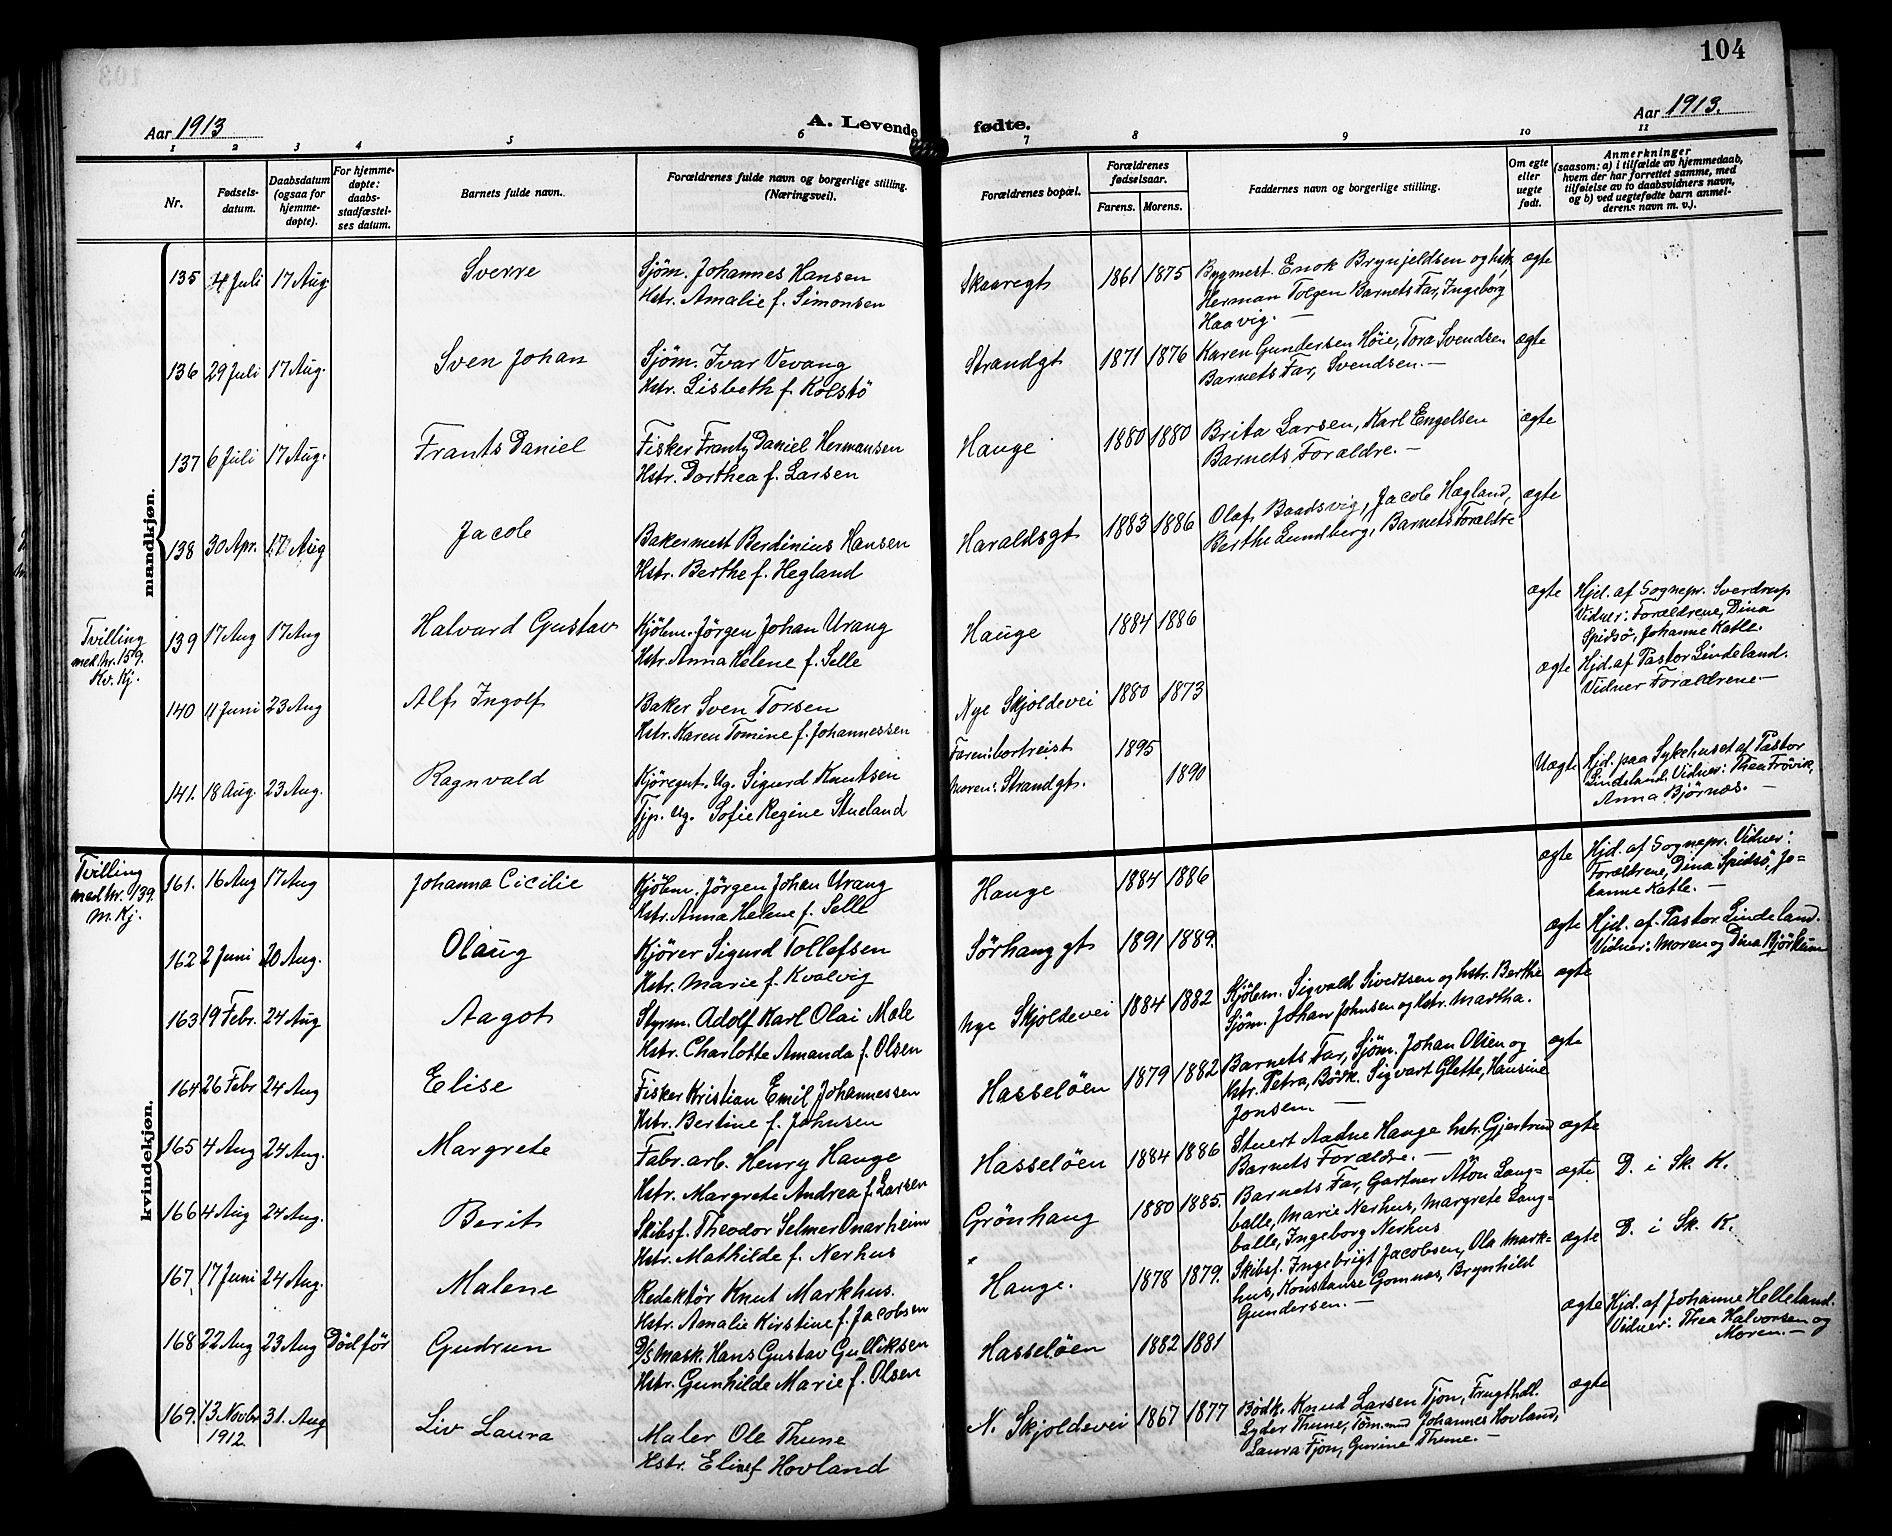 104
Aar 1913
A. Levende fødte.
Aar 1913.
1 2 3 4 5 6 7 8 9 10 11
Nr.
Fødsels-
datum.
Daabsdatum
(ogsaa for
hjemme-
døpte).
For hjemme-
døpte:
daabs-
stadfæstel-
ses datum.
Barnets fulde navn.
Forældrenes fulde navn og borgerlige stilling.
(Næringsvei).
Forældrenes bopæl.
Forældrenes
fødselsaar.
Farens. Morens.
Faddernes navn og borgerlige stilling.
Om egte
eller
uegte
født.
Anmerkninger
(saasom: a) i tilfælde av hjemmedaab,
hvem der har forrettet samme, med
tilføielse av to daabsvidners navn,
og b) ved uegtefødte barn anmel-
derens navn m. v.).
mandkjøn.
135 4 Juli 17 Aug. Sverre
Sjøm. Johannes Hansen
Hstr. Amalie f. Simonsen
Skaaregt 1861 1875
Bygmest. Enok Brynjeldsen og hstr,
Herman Tolgen Barnets Far, Ingeborg
Haavig. —
ægte
136 29 Juli 17 Aug. Sven Johan
Sjøm. Ivar Vevang
Hstr. Lisbeth f. Kolstö
Strandgt 1871 1876
Karen Gundersen Höie, Tora Svendsen
Barnets Far, Svendsen. —
ægte
137 6 Juli 17 Aug. Frants Daniel
Fisker Frantz Daniel Hermansen
Hstr. Dorthea f. Larsen
Hauge 1880 1880
Brita Larsen, Karl Engelsen
Barnets Forældre. —
ægte
138 30 Apr. 17 Aug Jacob
Bakermest Berdinius Hansen
Hstr. Berthe f. Hegland
Haraldsgt 1883 1886
Olaf Baadsvig, Jacob Hægland,
Berthe Lundberg, Barnets Forældre
ægte
Tvilling
med Nr. 159.
Kv. Kj.
139 17 Aug 17 Aug Halvard Gustav
Kjøbm. Jørgen Johan Urang
Hstr. Anna Helene f. Selle
Hauge 1884 1886
ægte
Hjd. af Sognepr. Sverdrup
Vidner: Forældrene, Dina
Spidsö, Johanne Katle.
140 11 Juni 23 Aug Alf Ingolf
Baker Sven Torsen
Hstr. Karen Tomine f. Johannessen
Nye Skjoldevei 1880 1873
ægte
Hjd. af Pastor Lindeland.
Vidner Forældrene —
141. 18 Aug. 23 Aug. Ragnvald
Kjøregut. Ug. Sigurd Knutsen
Tjp. ug. Sofie Regine Stueland
Faren: bortreist 1895
Moren: Strandgt. 1890
Uægte
Hjd. paa Sykehuset af Pastor
Lindeland. Vidner: Thea Frövik,
Anna Bjørnæs. —
kvindekjøn.
Tvilling
med Nr. 139.
M. Kj.
161. 16 Aug 17 Aug Johanna Cicilie
Kjøbm. Jörgen Johan Urang
Hstr. Anna Helene f. Selle
Hauge 1884 1886
ægte
Hjd. af Sognepr. Vidner:
Forældrene, Dina Spidsö, Jo-
hanne Katle. —
162 2 Juni 20 Aug. Olaug
Kjörer Sigurd Tollefsen
Hstr. Marie f. Kvalvig
Sörhauggt 1891 1889.
ægte
Hjd. af. Pastor Lindeland.
Vidner: Moren og Dina Björkum
163 19 Febr. 24 Aug Aagot
Styrm. Adolf Karl Olai Mæle
Hstr. Charlotte Amanda f. Olsen
Nye Skjoldevei 1884 1882
Kjöbm. Sigvald Sivertsen og hstr. Berthe
Sjøm. Johan Johnsen og hstr. Martha.
ægte
164 26 Febr 24 Aug Elise
Fisker Kristian Emil Johannessen
Hstr. Bertine f. Johnsen
Hasselöen 1879 1882
Barnets Far, Sjöm. Johan Olsen og
hstr. Petra, Bödk. Sigvart Glette, Hansine
Jonsen. —
ægte
165 4 Aug 24 Aug. Margrete
Fabr. arb. Henry Hauge
Hstr. Margrete Andrea f. Larsen
Hasselöen 1884 1886
Stuert Aadne Hauge hstr. Gjertrud
Barnets Forældre. —
ægte
166 4 Aug 24 Aug. Berit
Skibsf. Theodor Selmer Onarheim
Hstr. Mathilde f. Nerhus
Grönhaug 1880 1885.
Barnets Far, Gartner Aton Lang-
balle, Marie Nerhus, Margrete Lang-
balle, Ingeborg Nerhus
ægte
D. i Sk. K.
167. 17 Juni 24 Aug. Malene
Redaktør Knut Markhus.
Hstr. Amalie Kirstine f. Jacobsen
Hauge. 1878 1879.
Skibsf. Ingebrigt Jacobsen, Ola Mark-
hus, Konstanse Gomnæs, Brynhild
Gundersen. —
ægte
D. i Sk. K.
168 22 Aug 23 Aug Död för Gudrun
D/S Mask. Hans Gustav Gulliksen
Hstr. Gunhilde Marie f. Olsen
Hasselöen 1882 1881
ægte
Hjd. af Johanne Helleland.
Vidner: Thea Halvorsen og
Moren. —
169. 13 Novbr 31. Aug Liv Laura
1912.
Maler Ole Thune
Hstr. Eline f Hovland
N. Skjoldevei 1867 1877
Bödk. Knud Larsen Tjon, Frugthdl.
Lyder Thune, Tömmd Johannes Hovland,
Laura Tjon, Gurine Thune. —
ægte